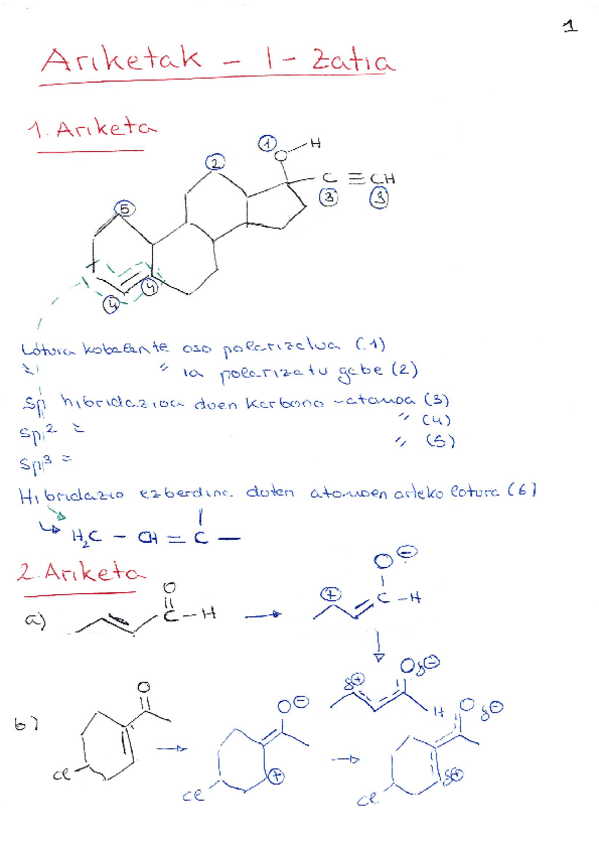 1
Ariketak - I - Zatia
1. Ariketa
1 O H
2
C ≡ CH
3 3
5
4 4
Lotura kobalente oso polarizatua (1)
〃 〃 ia polarizatu gabe (2)
Sp hibridazioa duen karbono-atomoa (3)
Sp² = 〃 (4)
Sp³ = 〃 (5)
Hibridazio ezberdina duten atomoen arteko lotura (6)
H₂C - CH = C -
2. Ariketa
a) O C-H → + O⊖ C-H
δ+ Oδ⊖ H
b) O Cl → O⊖ + Cl → Oδ⊖ δ+ Cl